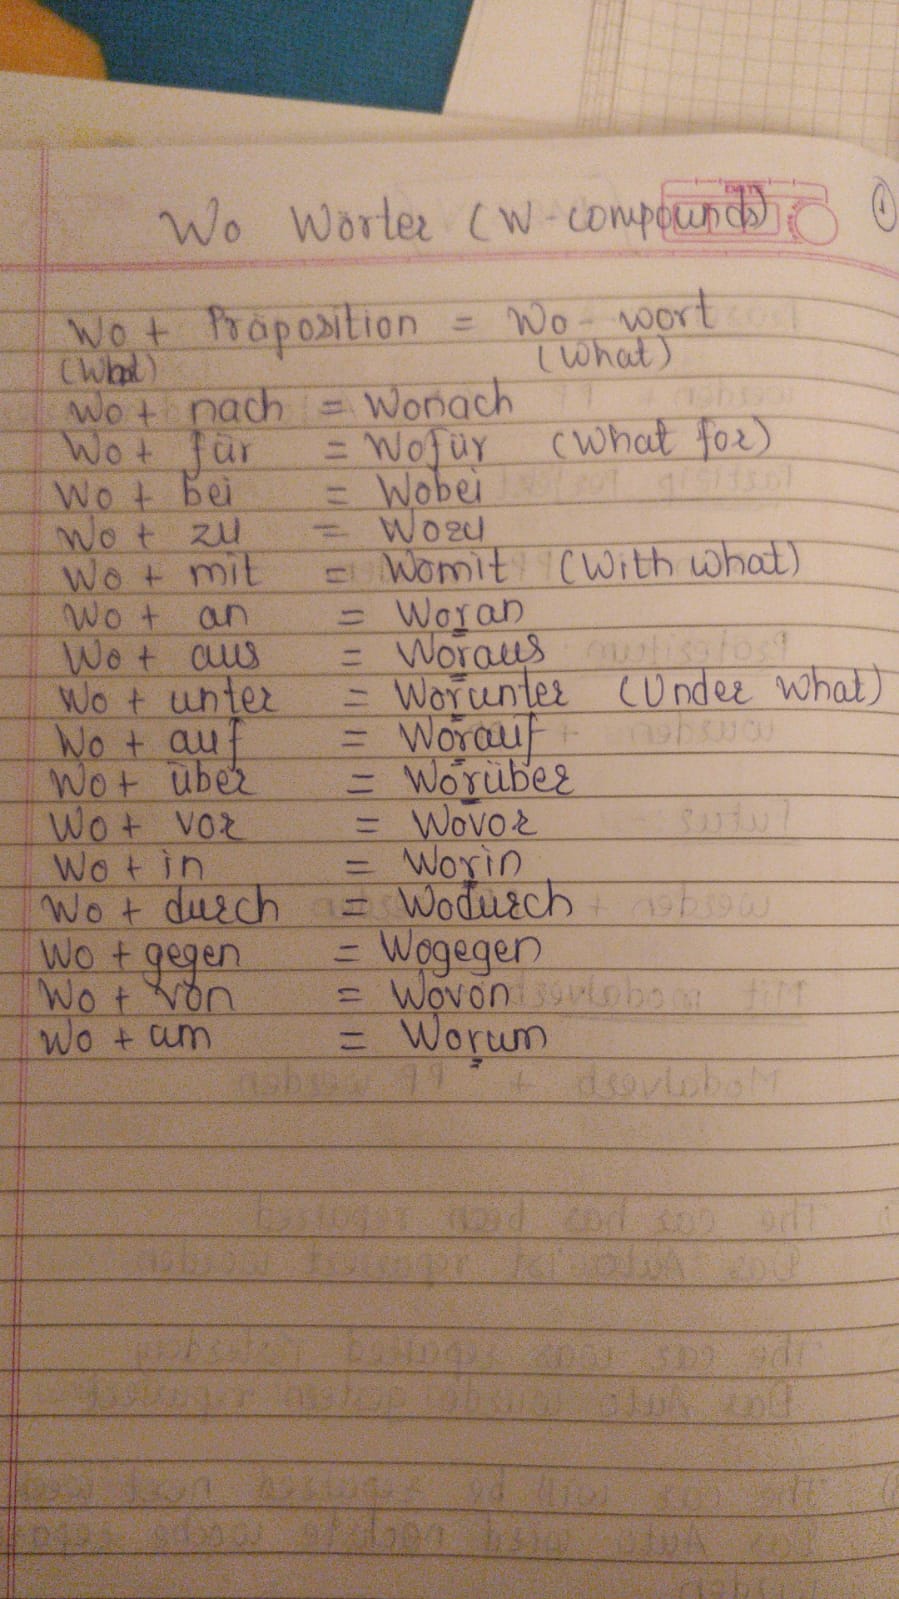 Wo Wörter (W-compounds)
1
Wo + Präposition = Wo-wort
(What) (What)
Wo + nach = Wonach
Wo + für = Wofür (What for)
Wo + bei = Wobei
Wo + zu = Wozu
Wo + mit = Womit (With what)
Wo + an = Woran
Wo + aus = Woraus
Wo + unter = Worunter (Under what)
Wo + auf = Worauf
Wo + über = Worüber
Wo + vor = Wovor
Wo + in = Worin
Wo + durch = Wodurch
Wo + gegen = Wogegen
Wo + von = Wovon
Wo + um = Worum